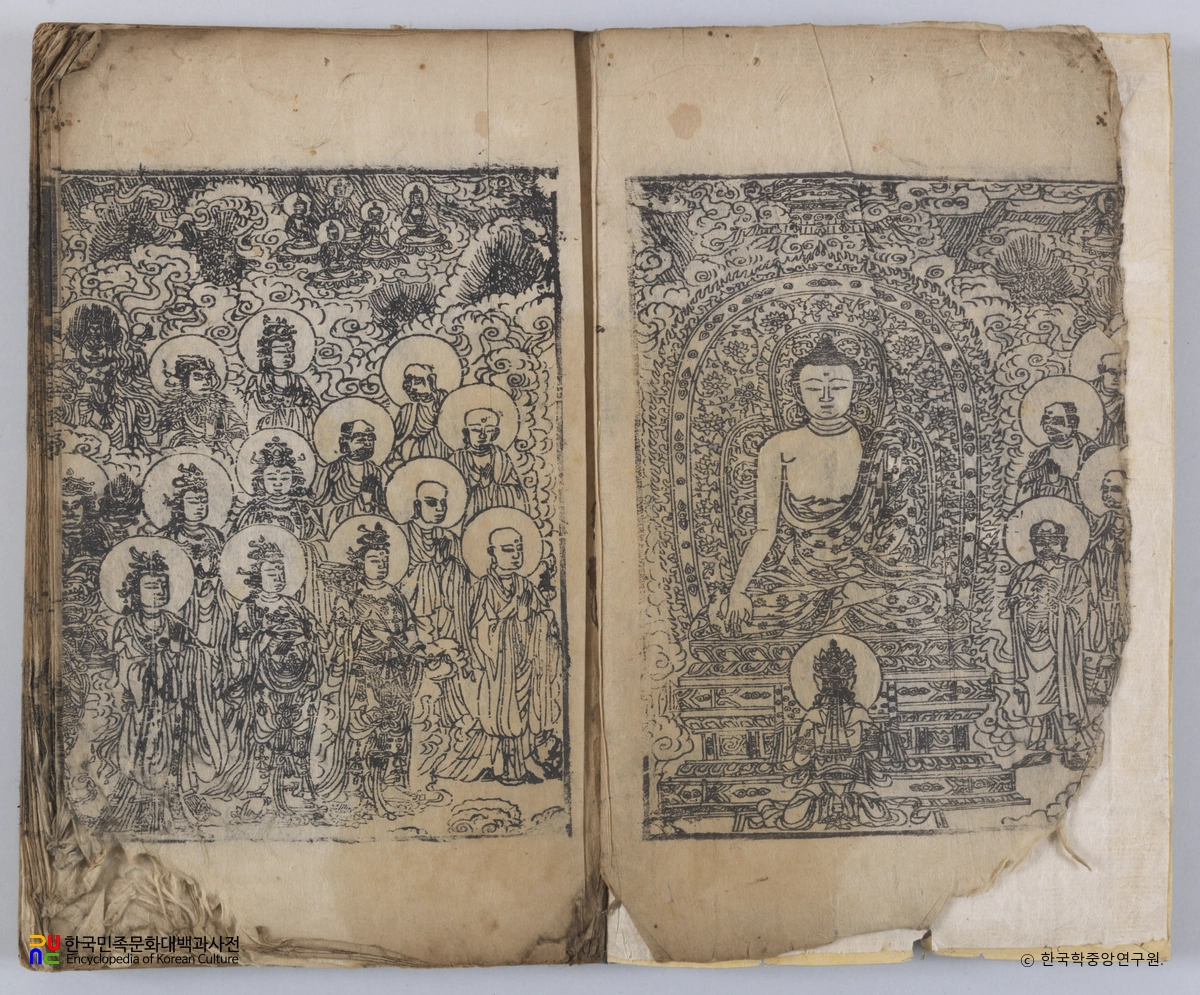 한국민족문화대백과사전
Encyclopedia of Korean Culture
© 한국학중앙연구원.